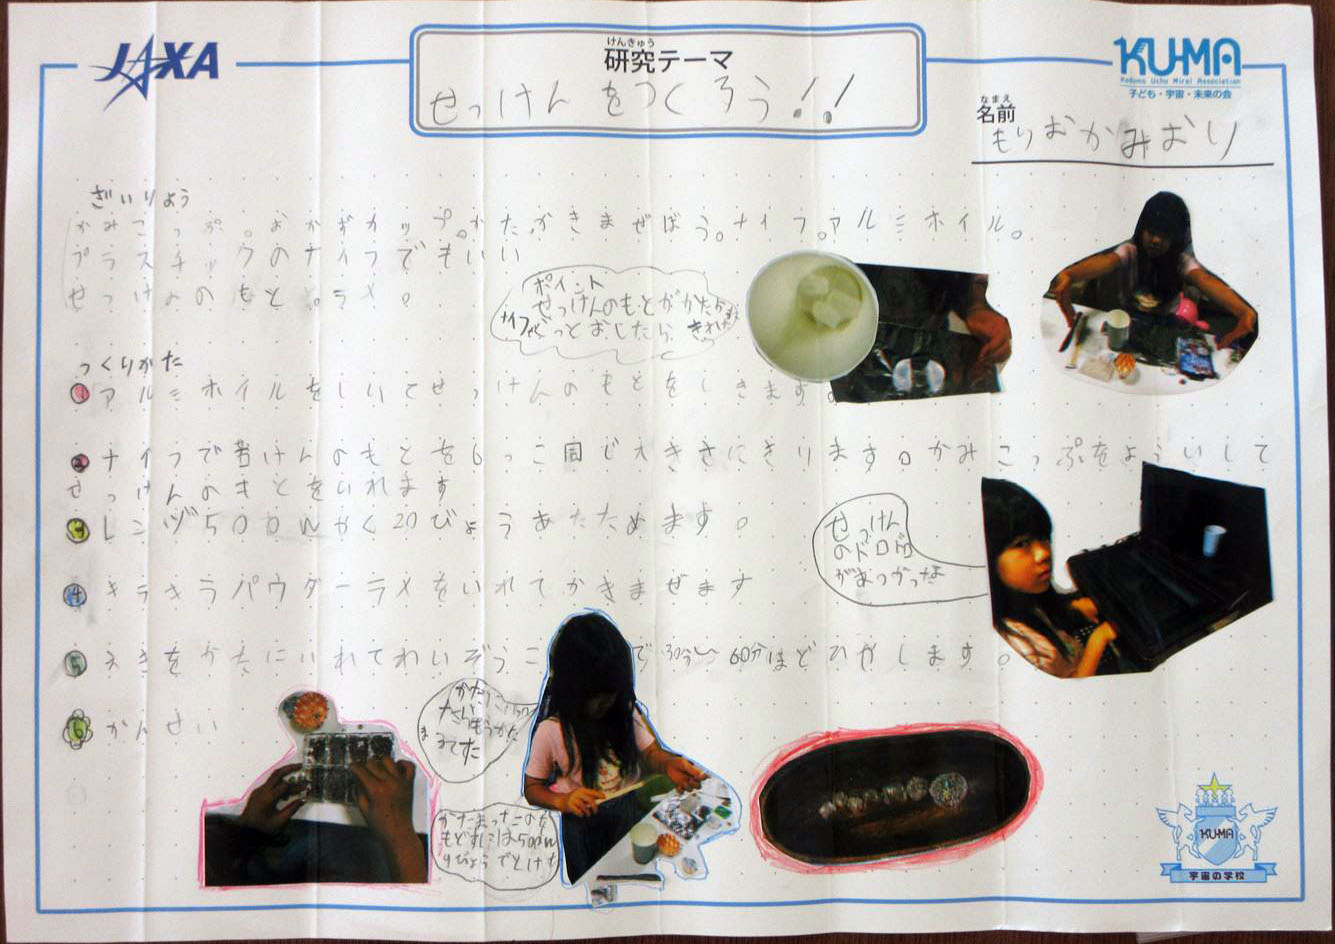 JAXA
けんきゅう
研究テーマ
せっけんをつくろう!!
KU-MA
Kodomo Uchu Mirai Association
子ども・宇宙・未来の会
なまえ
名前
もりおかみおり
ざいりょう
かみこっぷ。おかずカップ。かた。かきまぜぼう。ナイフ。アルミホイル。
プラスチックのナイフでもいい
せっけんのもと。ラメ。
ポイント
せっけんのもとがかたか
ナイフで
おしたら
つくりかた
1 アルミホイルをしいてせっけんのもとをしきます。
2 ナイフで石けんのもとを6っこ同じ大きさにきります。かみこっぷをよういして
せっけんのもとをいれます
3 レンヅ500Wかく20びょうあたためます。
せっけん
のドロドロ
があつかったよ
4 キラキラパウダーラメをいれてかきまぜます
5 えきをかたにいれてれいぞうこ で30分〜60分ほどひやします。
6 かんせい
かたまった
もどすには500W
びょうでとけた
KU-MA
宇宙の学校